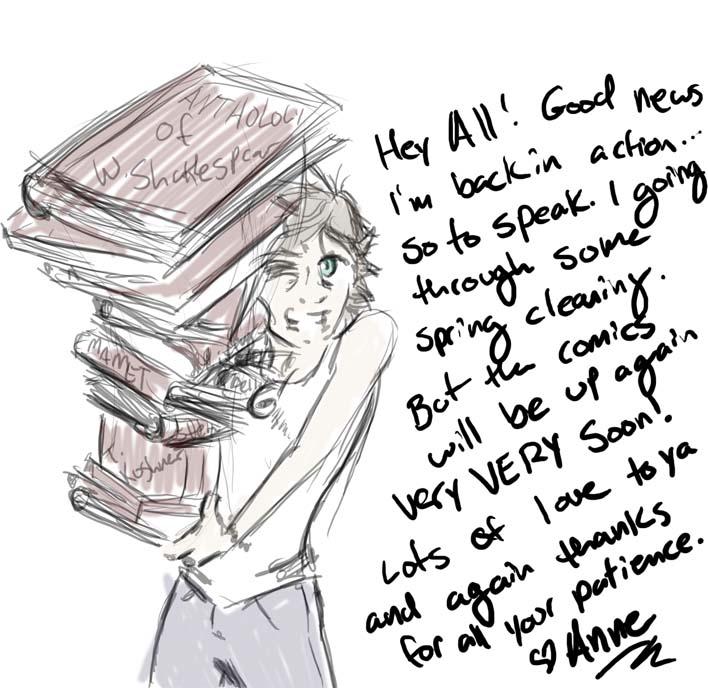 ANTHOLOGY
of
W. Shakespear
MAMET
Kushner
Hey All! Good news
i'm back in action...
so to speak. I going
through some
spring cleaning.
But the comics
will be up again
very VERY soon!
Lots of love to ya
and again thanks
for all your patience.
♡ Anne